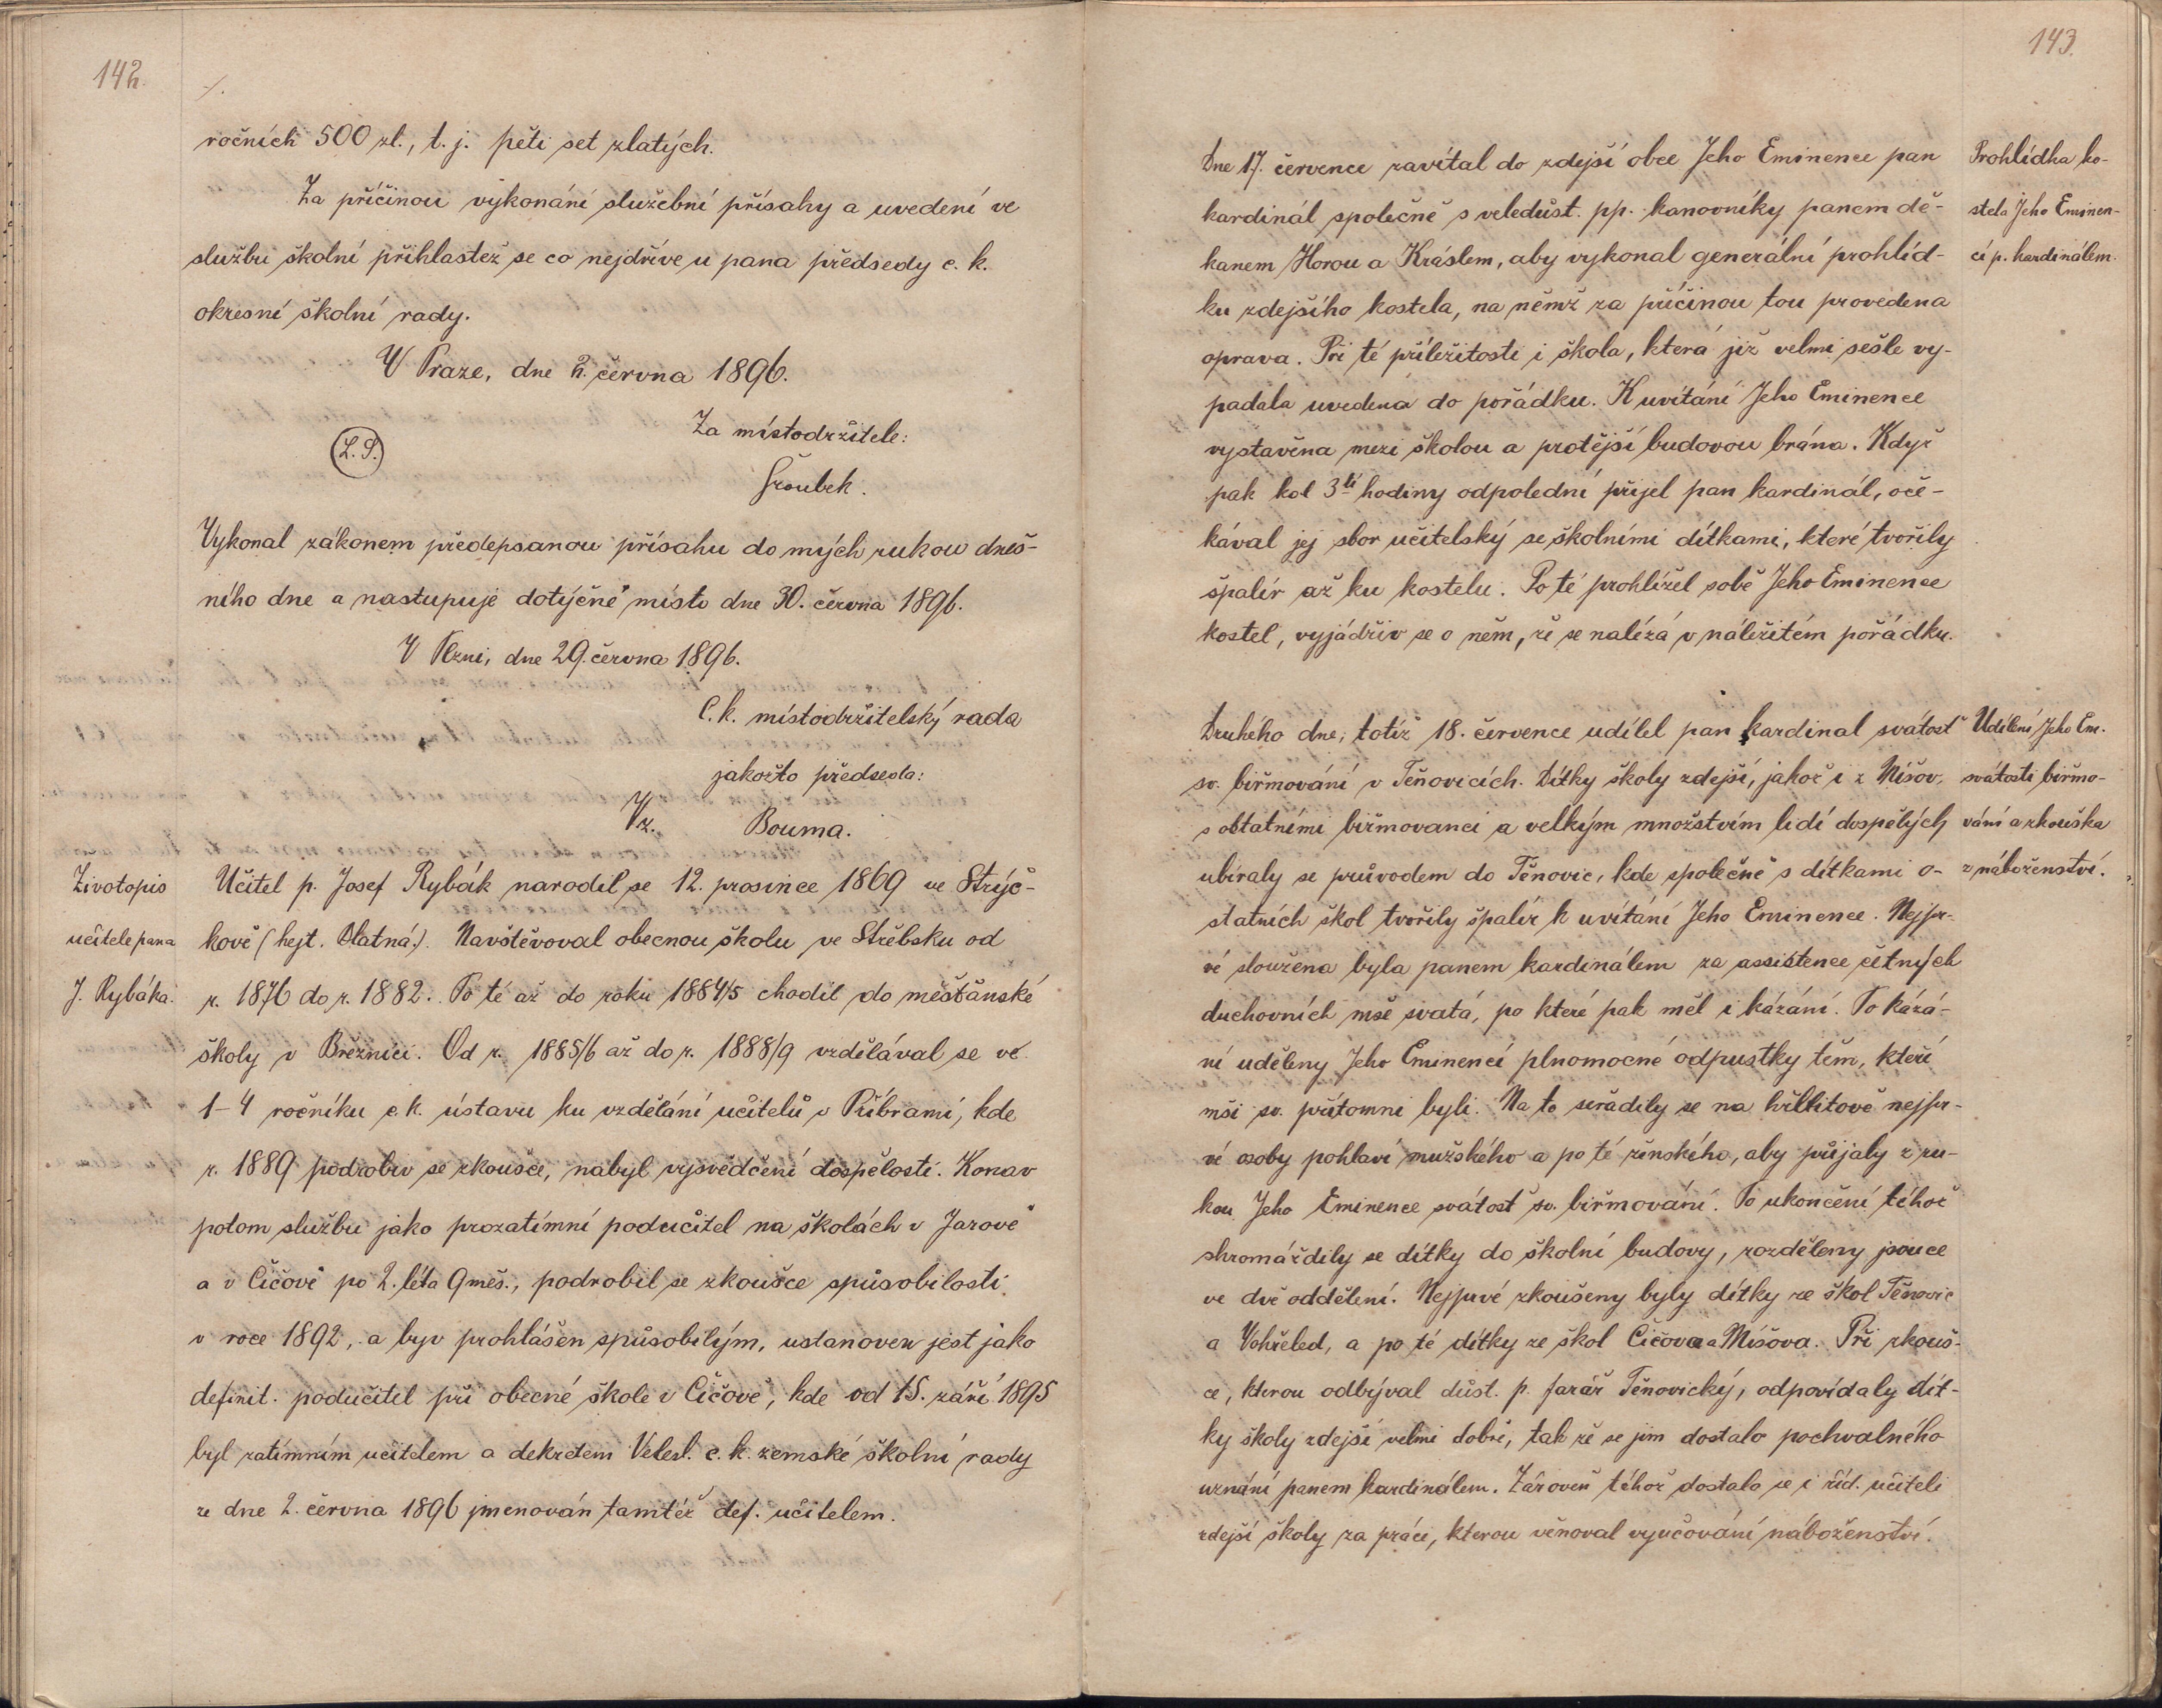 142.
ročních 500 zl., t. j. pěti set zlatých.
Za příčinou vykonání služební přísahy a uvedení ve
službu školní přihlastež se co nejdříve u pana předsedy c. k.
okresní školní rady.
V Praze, dne 2. června 1896.
Za místodržitele:
(L. S.)
Šroubek.
Vykonal zákonem předepsanou přísahu do mých rukou dneš-
ního dne a nastupuje dotýčné místo dne 30. června 1896.
V Plzni, dne 29. června 1896.
C. k. místodržitelský rada
jakožto předseda:
Vz. Bouma.
Životopis
učitele pana
J. Rybáka.
Učitel p. Josef Rybák narodil se 12. prosince 1869 ve Strýč-
kově (hejt. Blatná.). Navštěvoval obecnou školu ve Střebsku od
r. 1876 do r. 1882. Po té až do roku 1884/5 chodil do měšťanské
školy v Březnici. Od r. 1885/6 až do r. 1888/9 vzdělával se ve
1-4 ročníku c. k. ústavu ku vzdělání učitelů v Příbrami, kde
r. 1889 podrobiv se zkoušce, nabyl vysvědčení dospělosti. Konav
potom službu jako prozatímní podučitel na školách v Jarově
a v Čičově po 2. léta 9 měs., podrobil se zkoušce způsobilosti
v roce 1892, a byv prohlášen způsobilým, ustanoven jest jako
definit. podučitel při obecné škole v Čičově, kde od 15. září 1895
byl zatímním učitelem a dekretem Veleсl. c. k. zemské školní rady
ze dne 2. června 1896 jmenován tamtéž def. učitelem.
143.
Prohlídka ko-
stela Jeho Eminen-
cí p. kardinálem.
Dne 17. července zavítal do zdejší obce Jeho Eminence pan
kardinál společně s veledůst. pp. kanovníky panem dě-
kanem Horou a Kráslem, aby vykonal generální prohlíd-
ku zdejšího kostela, na němž za příčinou tou provedena
oprava. Při té příležitosti i škola, která již velmi sešle vy-
padala uvedena do pořádku. K uvítání Jeho Eminence
vystavěna mezi školou a protější budovou brána. Když
pak kol 3tí hodiny odpolední přijel pan kardinál, oče-
kával jej sbor učitelský se školními dítkami, které tvořily
špalír až ku kostelu. Po té prohlížel sobě Jeho Eminence
kostel, vyjádřiv se o něm, že se nalézá v náležitém pořádku.
Udělení Jeho Em.
svátosti biřmo-
vání a zkouška
z náboženství.
Druhého dne, totiž 18. července udílel pan kardinal svátosť
sv. biřmování v Těňovicích. Dítky školy zdejší, jakož i z Míšov,
s obtatními biřmovanci a velkým množstvím lidí dospělých
ubíraly se průvodem do Těnovic, kde společně s dítkami o-
statních škol tvořily špalír k uvítání Jeho Eminence. Nejpr-
vé sloužena byla panem kardinálem za assistence četných
duchovních mše svatá, po které pak měl i kázání. Po kázá-
ní uděleny Jeho Eminencí plnomocné odpustky těm, kteří
mši sv. přítomni byli. Na to seřadily se na hřbitově nejpr-
vé osoby pohlaví mužského a po té ženského, aby přijaly z ru-
kou Jeho Eminence svátosť sv. biřmování. Po ukončení téhož
shromáždily se dítky do školní budovy, rozděleny jsouce
ve dvě oddělení. Nejprvé zkoušeny byly dítky ze škol Těnovic
a Vohřeled, a po té dítky ze škol Čičova a Míšova. Při zkouš-
ce, kterou odbýval důst. p. farář Těnovický, odpovídaly dít-
ky školy zdejší velmi dobře, tak že se jim dostalo pochvalného
uznání panem kardinálem. Zároveň téhož dostalo se i říd. učiteli
zdejší školy za práci, kterou věnoval vyučování náboženství.